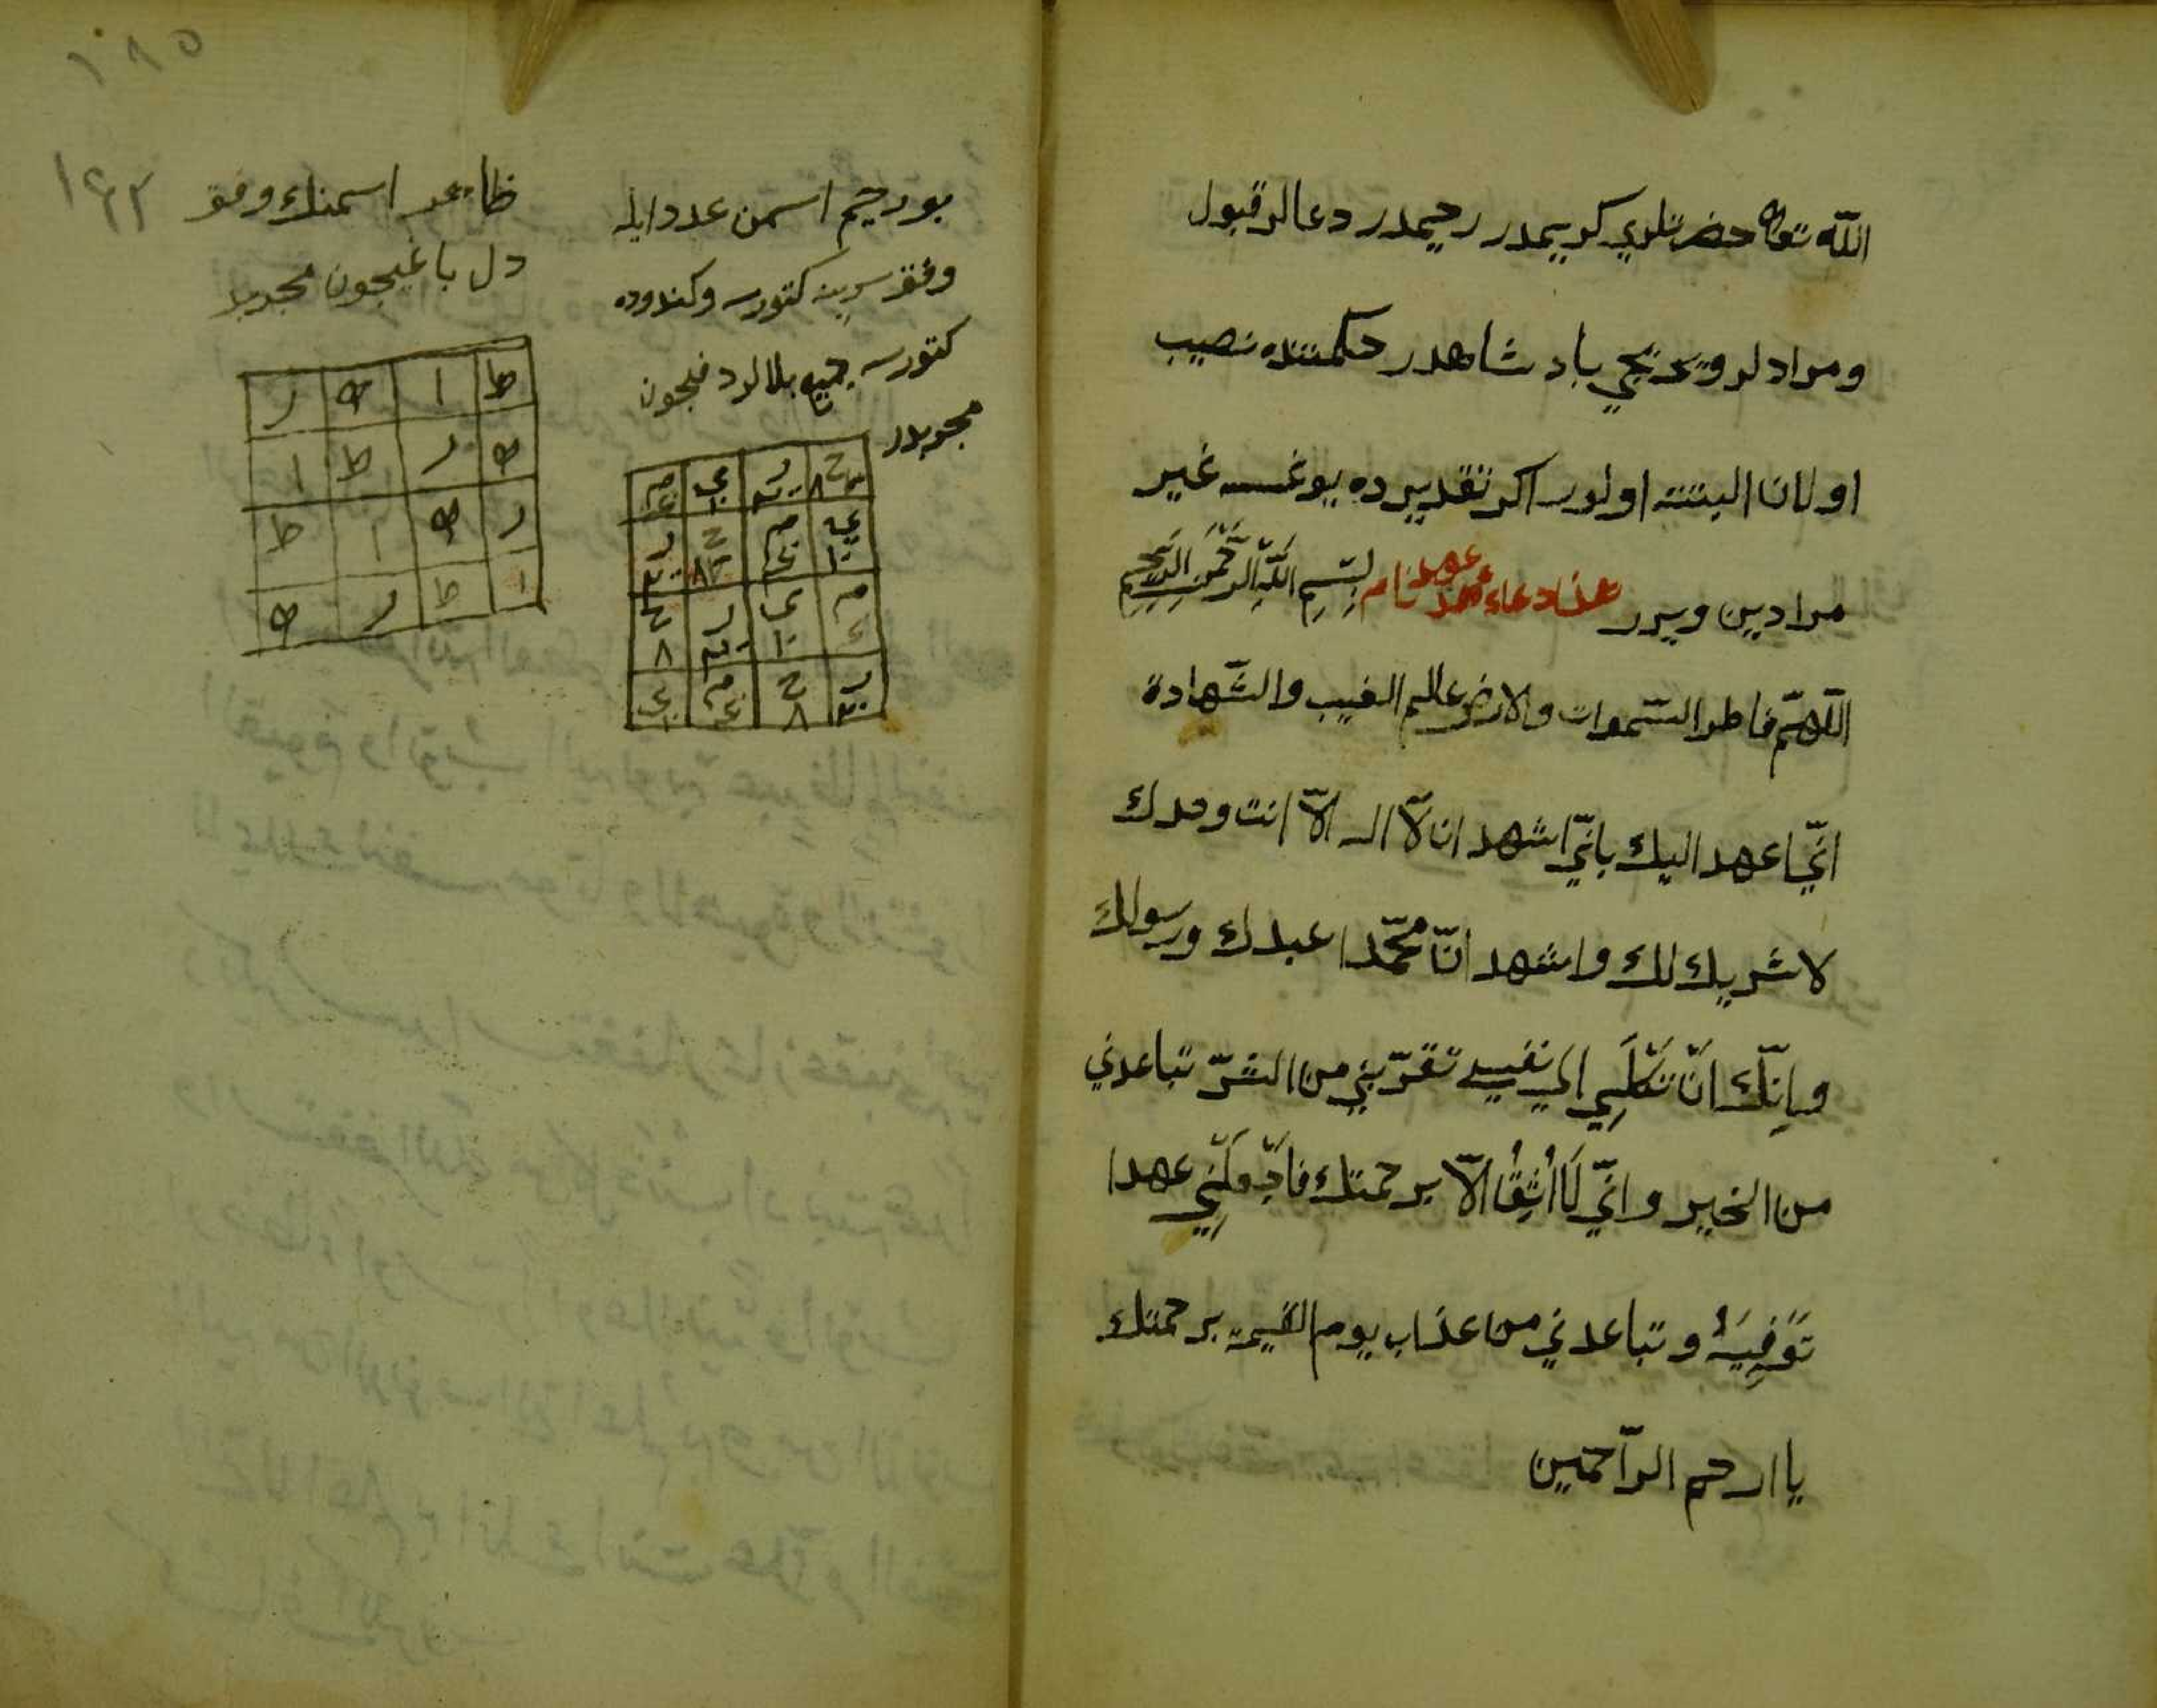 الله تعالى حضرتلري كريمدر رحيمدر دعالر قبول
ومرادلر ويريجي بادشاهدر حكمتنده نصيب
اولان البتته اولور اكر تقديرده يوغسه غير
مرادين ويرر هذا دعاء عهد نام بِسْمِ اللّٰهِ الرَّحْمٰنِ الرَّحِيمِ
اللّهمّ فاطر السّموات والارض عالم الغيب والشّهادة
انّي اعهد اليك بانّي اشهد ان لآ اله الّا انت وحدك
لا شريك لك واشهد انّ محمّدا عبدك ورسولك
وانّك انّ تَكَلْنِي الي نفسي تقرّبني من الشّرّ تباعدني
من الخير وانّي لَا اَثِقُ الّا برحمتك فاجْعَلْنِي عهدا
تَوَفِيَهُ وتباعدني من عذاب يوم القيمة برحمتك
يا ارحم الرّاحمين
بو رحيم اسمن عدد ايله
وفق سرينه كتورسه وكندوده
كتورسه جميع بلالر دفيجون
مجربدر
ح ر ي م
ي م ح ر
م ي ر ح
ر ح م ي
ظاهر اسمنك وفق
دل باغيجون مجربدر
ط ا ه ر
ه ر ط ا
ر ه ا ط
ا ط ر ه
١٩٢